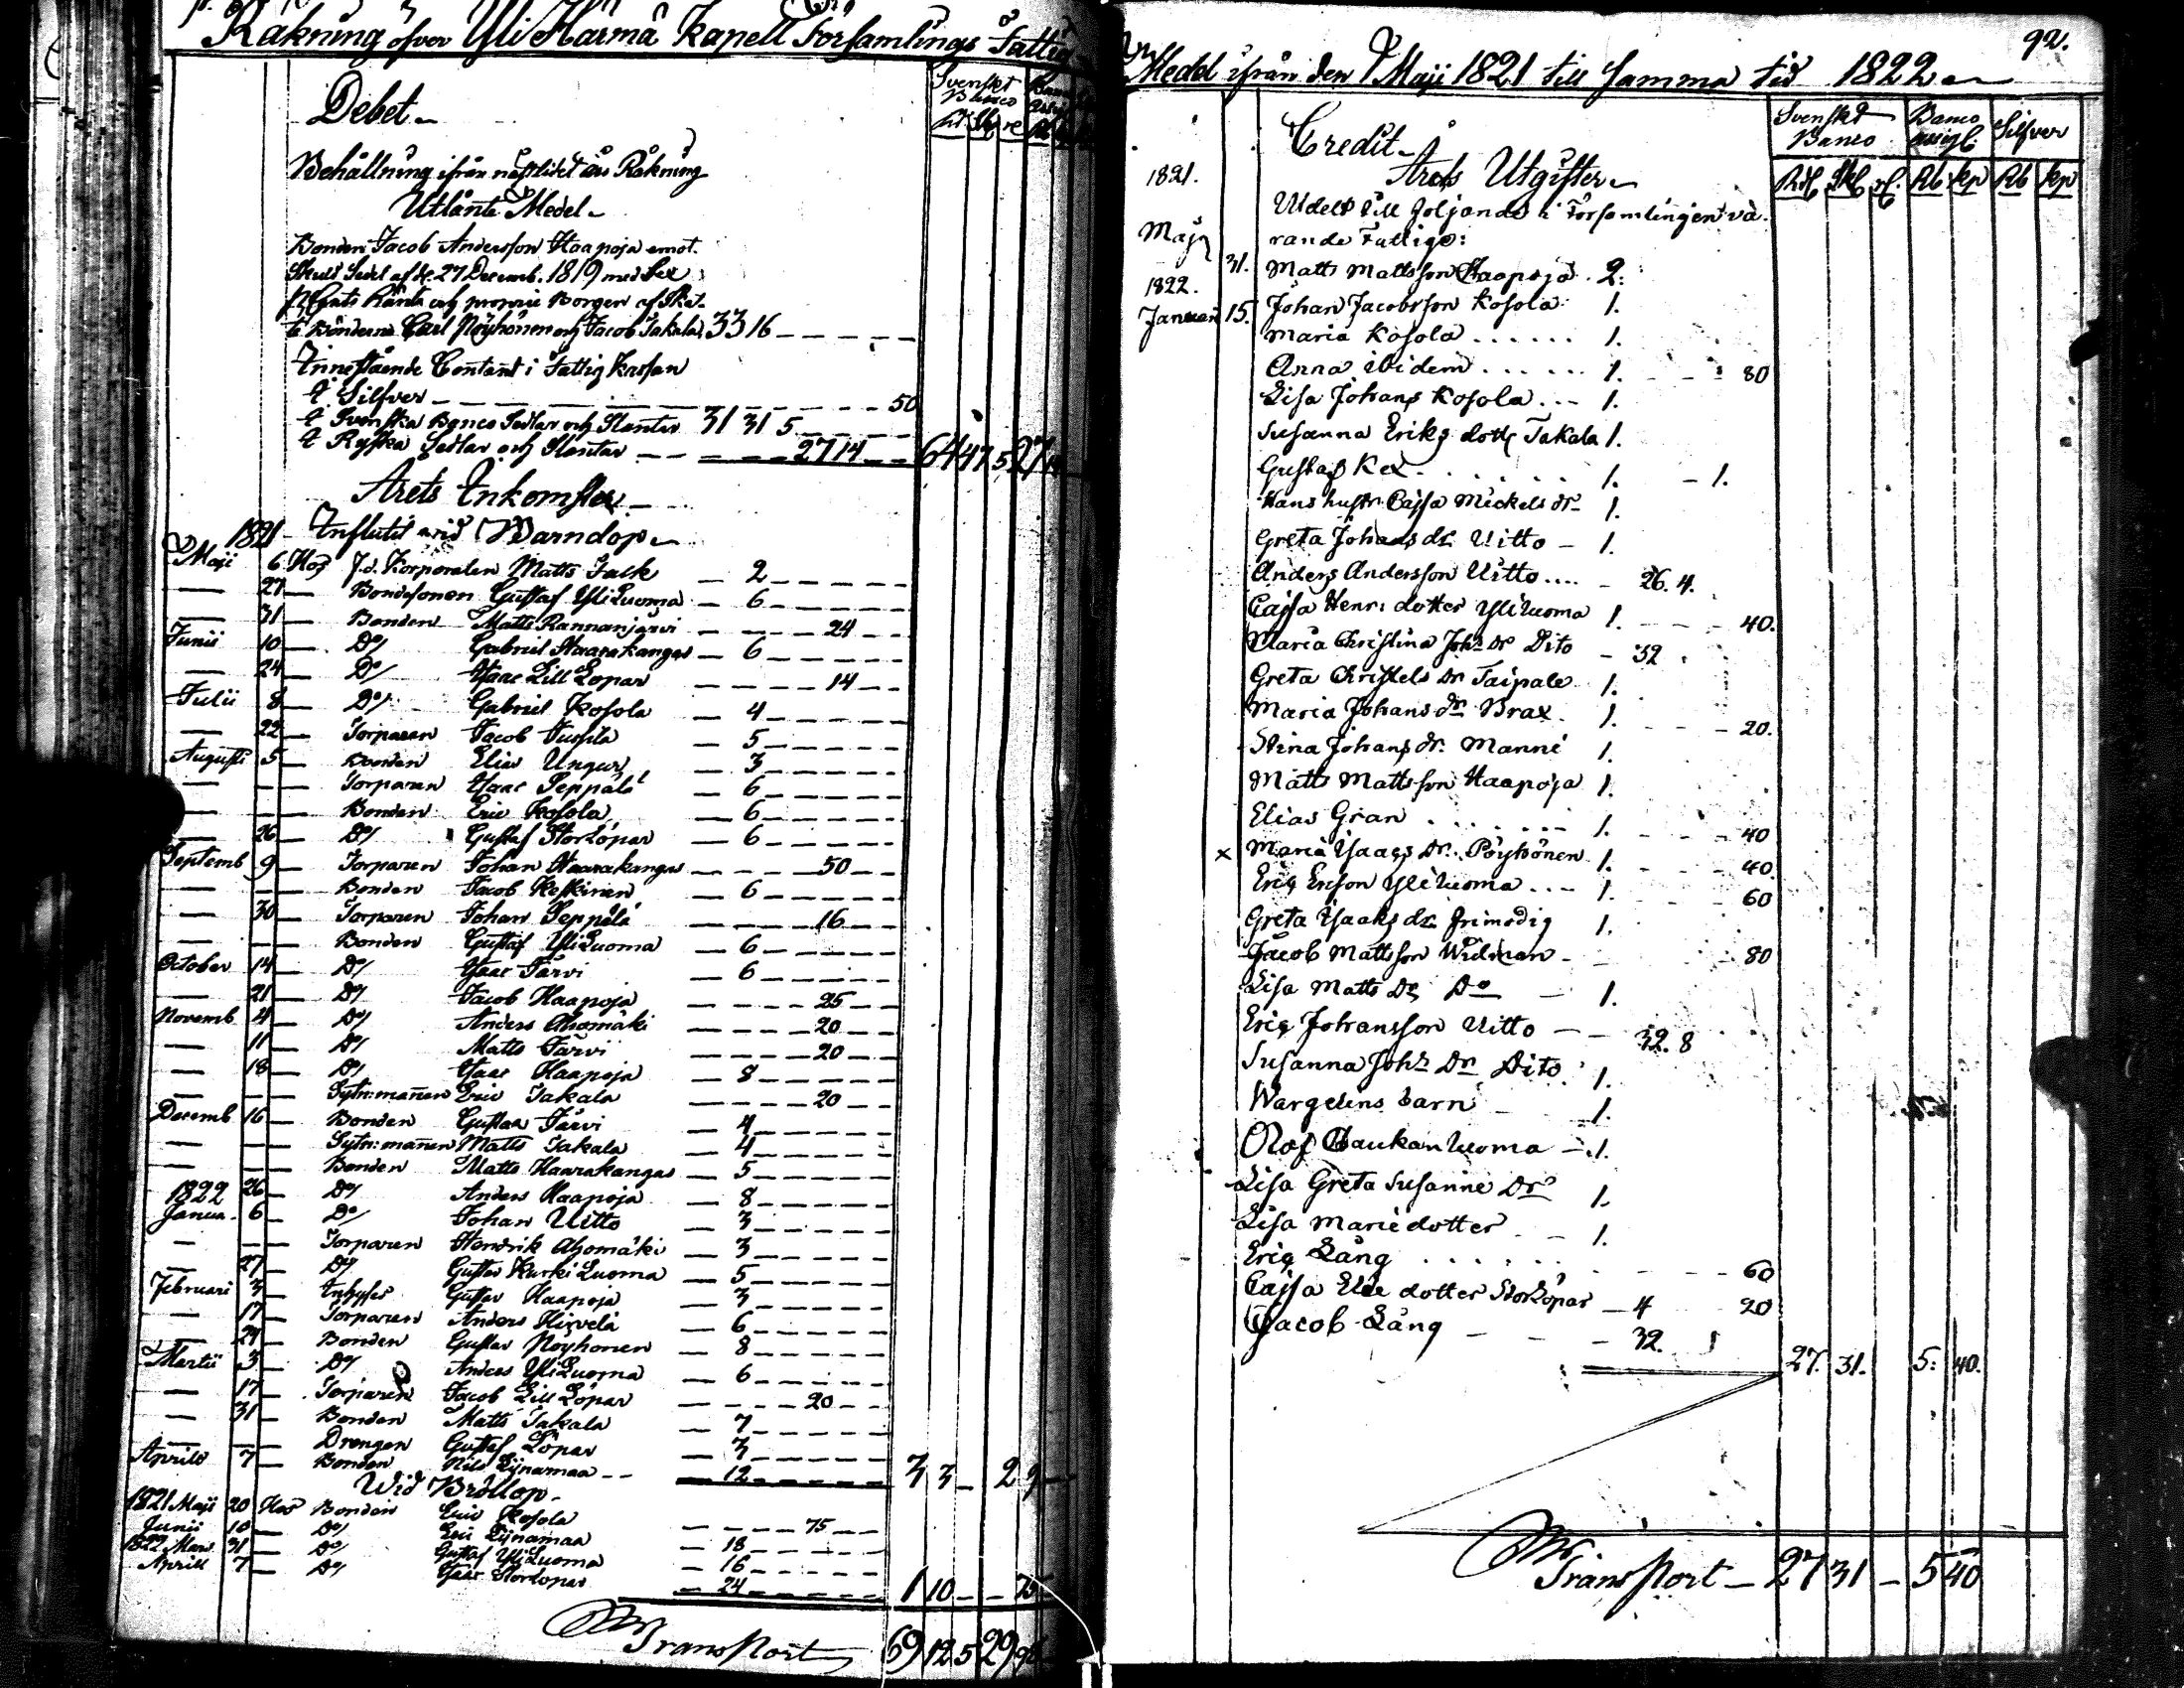 Räkning öfver Yli Härmä Kapell Församlings Fattig
Debet
Svenskt Banco
Behållning ifrån nästlidet års Räkning
Utlånte Medel
Bonden Jacob Andersson Haapoja emot
Skuld Sedel af d. 27 Decemb. 1819 med Sex
PCents Ränta och proprie Borgen af
Bönderne Carl Pöyhönen och Jacob Takala 33 16
Innestående Contant i Fattig Kassan
i Silfver 50
i Svenska Banco Sedlar och Slantar 31 31 5
i Ryska Sedlar och Slantar 27 14 64 47 5 27 14
Årets Inkomster
1821 Influtit vid Barndop
Maji 6 Hos f.d. Korporalen Matts Jack 2
27 Bondesonen Gustaf YliLuoma 6
31 Bonden Matts Rannanjärvi 24
Junii 10 Do/ Gabriel Haarakangas 6
24 Do/ Isaac Lill Lopar 14
Julii 8 Do/ Gabriel Kosola 4
22 Torparen Jacob Tuhila 5
Augusti 5 Bonden Elias Ungur 3
Torparen Isaac Seppälä 6
Bonden Eric Kosola 6
26 Do/ Gustaf Storlöpar 6
Septemb 9 Torparen Johan Haarakangas 50
Bonden Jacob Keskinen 6
30 Torparen Johan Seppälä 16
Bonden Gustaf YliLuoma 6
October 14 Do/ Isaac Järvi 6
21 Do/ Jacob Haapoja 25
Novemb 4 Do/ Anders Ahomäki 20
11 Do/ Matts Järvi 20
18 Do/ Isaac Haapoja 8
Sytn:mannen Eric Takala 20
Decemb 16 Bonden Gustaa Järvi 4
Sytn:mannen Matts Takala 4
Bonden Matts Haarakangas 5
26 Do/ Anders Haapoja 8
1822
Janua. 6 Do/ Johan Uitto 3
Torparen Hendrik Ahomäki 3
27 Do/ Gustav Kurki Luoma 5
Februari 3 Inhyses Gustav Haapoja 3
17 Torparen Anders Hirvelä 6
24 Bonden Gustav Pöyhonen 8
Martii 3 Do/ Anders YliLuoma 6
17 Torparen Jacob Lill Löpar 20
31 Bonden Matts Takala 7
Drengen Gustaf Löpar 3
Aprill 7 Bonden Nils Lijnamaa 12 3 3 2 9
Wid Bröllop
1821 Maji 20 Hos Bonden Eric Kosola 75
Junii 10 Do/ Eric Lijnamaa 18
1822 Mars 31 Do/ Gustaf YliLuoma 16
Aprill 7 Do/ Isaac Storlopar 24 1 10 75
Transport 69 12 5 29 98
92.
Medel ifrån den 1 Maji 1821 till samma tid 1822
Credit
Svenskt Banco Banco assigl: Silfver
Rd Sk rs. Rb kp Rb kp
Årets Utgifter
1821.
Utdelt till foljande i Församlingen va-
Maji
rande Fattige:
31. Matts Mattsson Haapoja 2:
1822.
Januari 15. Johan Jacobsson Kosola 1.
Maria Kosola 1.
Anna ibidem 1. 80
Lisa Johans Kosola 1.
Susanna Eriks dottr Takala 1.
Gustaf Kex 1. 1.
Hans hustr. Cajsa Mickels dr 1.
Greta Johans dr. Uitto 1.
Anders Andersson Uitto 26. 4.
Cajsa Henr: dotter Yliluoma 1. 40.
Maria Christina Johs Dr Dito 32
Greta Christels Dr Taipale 1.
Maria Johans dr Brax 1. 20.
Stina Johans dr. Manni 1.
Matts Mattsson Haapoja 1.
Elias Gran 1. 40
x Maria Isaacs Dr. Pöyhönen 1. 40
Eriq Ericson Yliluoma 1. 60
Greta Isaaks dr. Frimodig 1.
Jacob Mattsson Widman 80
Lisa Matts Dr Do 1.
Eriq Johansson Uitto 32. 8
Susanna Johs Dr Dito 1.
Wargelins barn 1.
Olof Haukanluoma 1.
Lisa Greta Susanne Dr 1.
Lisa Marie dotter 1.
Eriq Lång 60
Cajsa Elie dotter Storlöpar 4 20
Jacob Lång 32.
27 31. 5: 40.
Transport 27 31 5 40